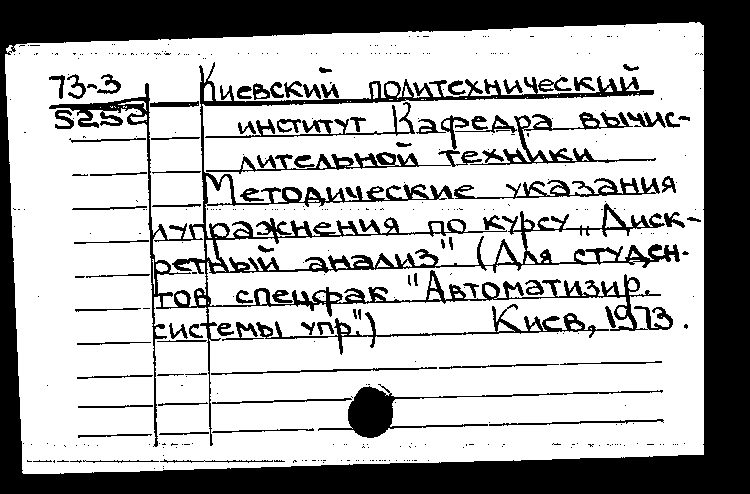 73-3 Киевский политехнический
5252 институт. Кафедра вычис-
лительной техники
Методические указания
и упражнения по курсу „Диск-
ретный анализ". (Для студен-
тов спецфак. "Автоматизир.
системы упр.") Киев, 1973.